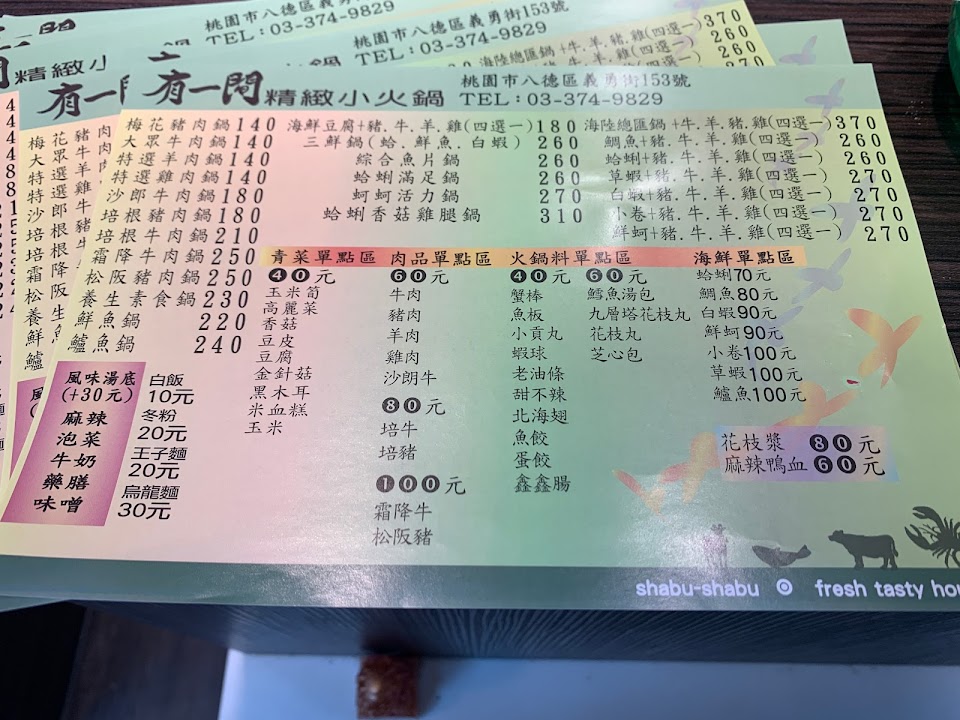 有一間精緻小火鍋
桃園市八德區義勇街153號
TEL:03-374-9829
梅花豬肉鍋 140
大眾牛肉鍋 140
特選羊肉鍋 140
特選雞肉鍋 140
沙郎牛肉鍋 180
培根豬肉鍋 180
培根牛肉鍋 210
霜降牛肉鍋 250
松阪豬肉鍋 250
養生素食鍋 230
鮮魚鍋 220
鱸魚鍋 240
海鮮豆腐+豬.牛.羊.雞(四選一) 180
三鮮鍋(蛤.鮮魚.白蝦) 260
綜合魚片鍋 260
蛤蜊滿足鍋 260
蚵蚵活力鍋 270
蛤蜊香菇雞腿鍋 310
海陸總匯鍋+牛.羊.豬.雞(四選一) 370
鯛魚+豬.牛.羊.雞(四選一) 260
蛤蜊+豬.牛.羊.雞(四選一) 260
草蝦+豬.牛.羊.雞(四選一) 260
白蝦+豬.牛.羊.雞(四選一) 270
小卷+豬.牛.羊.雞(四選一) 270
鮮蚵+豬.牛.羊.雞(四選一) 270
青菜單點區
40元
玉米筍
高麗菜
香菇
豆皮
豆腐
金針菇
黑木耳
米血糕
玉米
肉品單點區
60元
牛肉
豬肉
羊肉
雞肉
沙朗牛
80元
培牛
培豬
100元
霜降牛
松阪豬
火鍋料單點區
40元
蟹棒
魚板
小貢丸
蝦球
老油條
甜不辣
北海翅
魚餃
蛋餃
鑫鑫腸
60元
鱈魚湯包
九層塔花枝丸
花枝丸
芝心包
海鮮單點區
蛤蜊70元
鯛魚80元
白蝦90元
鮮蚵90元
小卷100元
草蝦100元
鱸魚100元
花枝漿 80元
麻辣鴨血 60元
風味湯底
(+30元)
麻辣
泡菜
牛奶
藥膳
味噌
白飯
10元
冬粉
20元
王子麵
20元
烏龍麵
30元
shabu-shabu fresh tasty